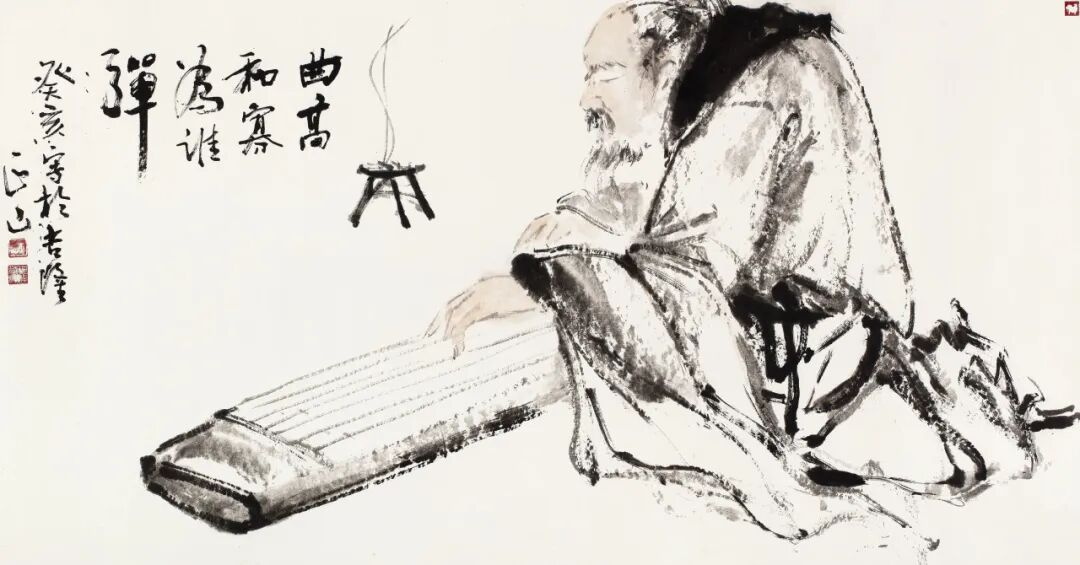 曲高
和寡
為誰
彈
癸亥写於吉隆
正山